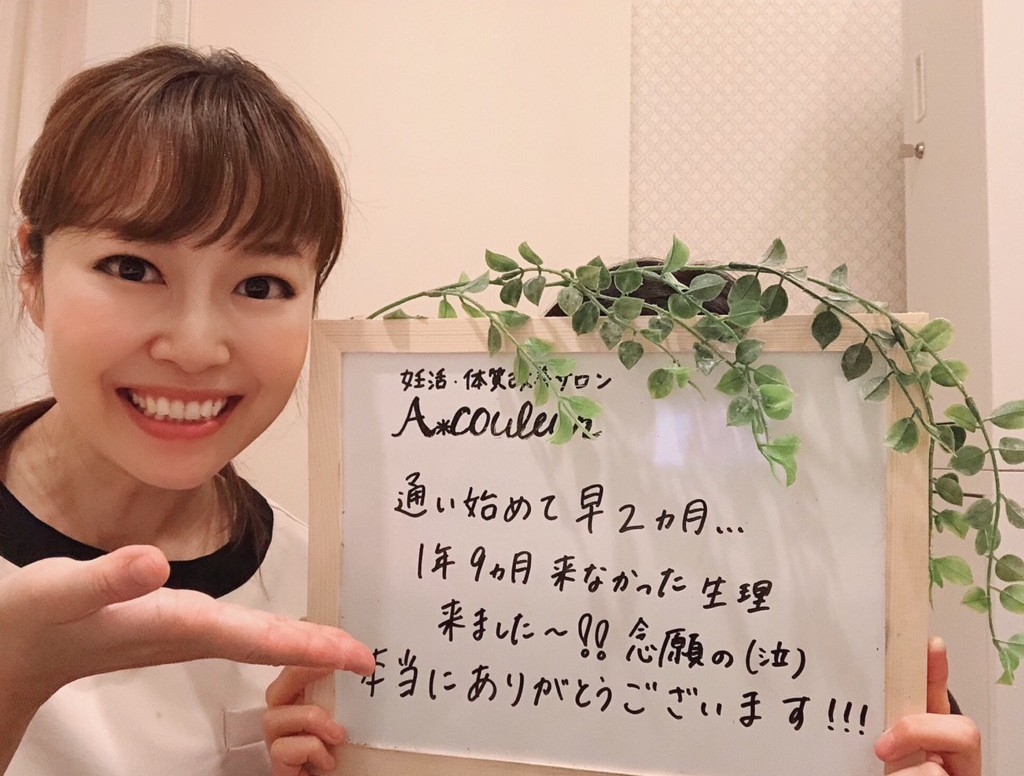 妊活・体質改善サロン
A*couleur
通い始めて早2ヵ月...
1年9ヵ月来なかった生理
来ました〜!! 念願の(泣)
本当にありがとうございます!!!